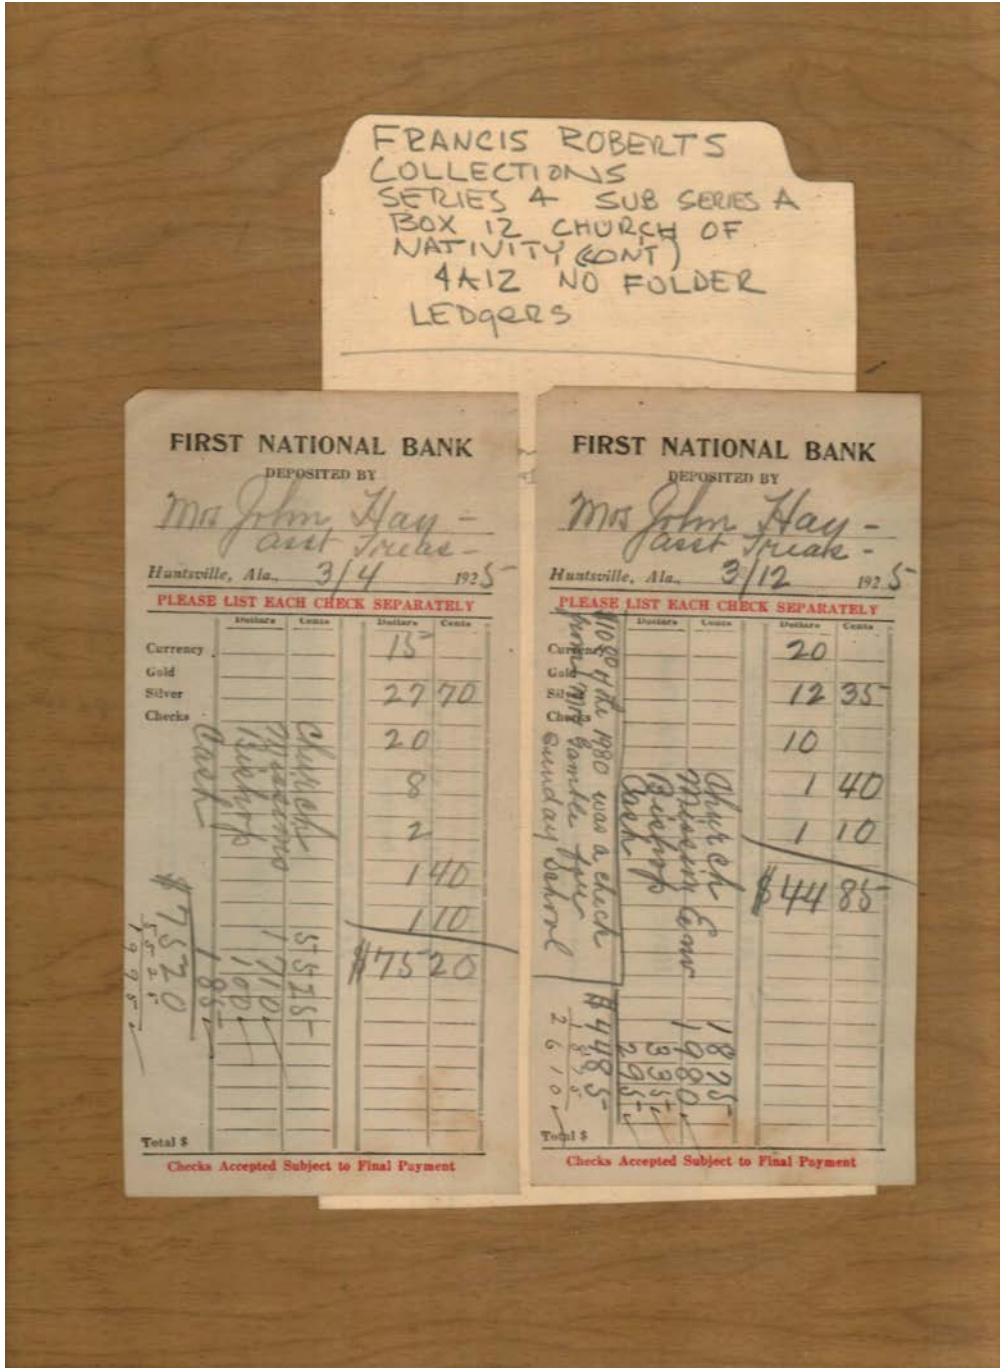 FRANCIS ROBERTS
COLLECTIONS
SERIES 4 SUB SERIES A
BOX 12 CHURCH OF
NATIVITY (CONT)
4A12 NO FOLDER
LEDgERS
FIRST NATIONAL BANK
DEPOSITED BY
Mrs John Hay -
asst Treas -
Huntsville, Ala., 3/4 1925
PLEASE LIST EACH CHECK SEPARATELY
Dollars Cents Dollars Cents
Currency 15
Gold
Silver 27 70
Checks
20
8
2
1 40
1 10
$75 20
Church 55 25
Missions 17 10
Bishop 1 00
Cash 1 85
$75 20
55 25
19 95
Total $
Checks Accepted Subject to Final Payment
FIRST NATIONAL BANK
DEPOSITED BY
Mrs John Hay -
asst Treas -
Huntsville, Ala., 3/12 1925
PLEASE LIST EACH CHECK SEPARATELY
Dollars Cents Dollars Cents
Currency 20
Gold
Silver 12 35
Checks
10
1 40
1 10
$44 85
$10 00 of the 1980 was a check
from Mrs Gamble for
Sunday School
Church 18 75
Mission Env 19 80
Bishop 3 35
Cash 2 95
$44 85
18 75
26 10
Total $
Checks Accepted Subject to Final Payment